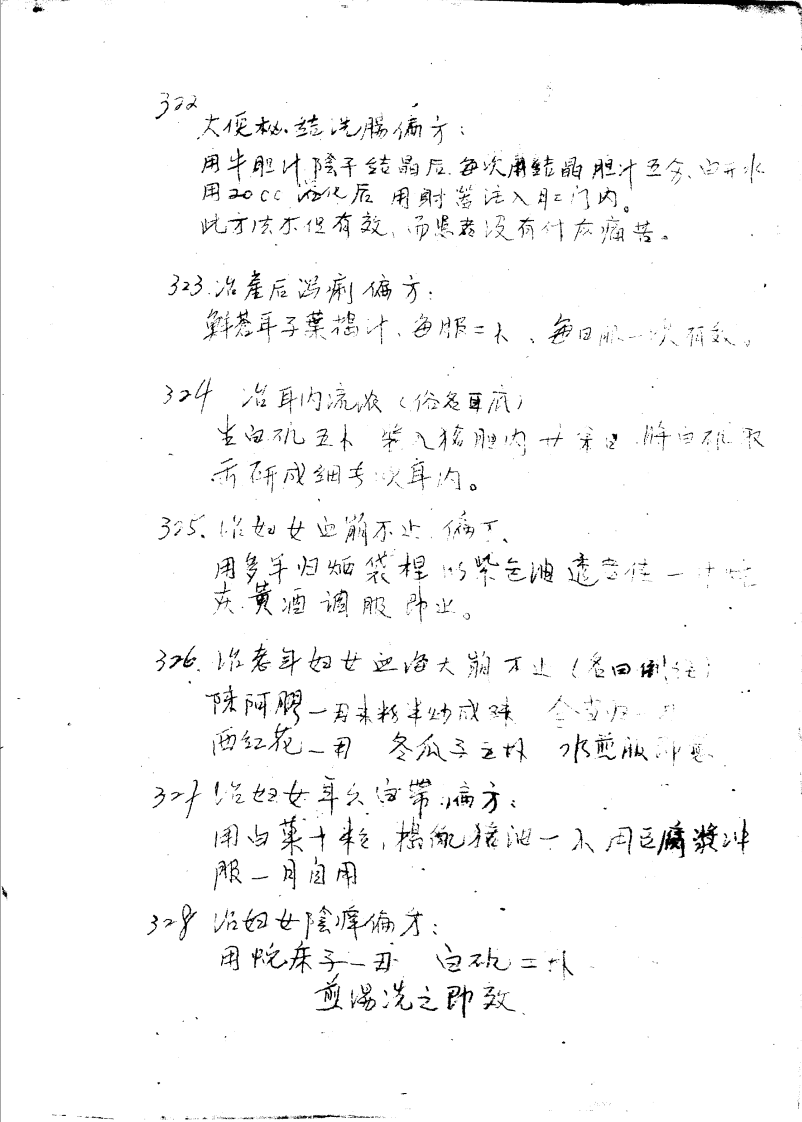 322
大便秘结洗腸偏方：
用牛胆汁陰子结晶后，每次用结晶胆汁五分，白开水
用20CC溶化后 用射器注入肛门内。
此方法不但有效，而患者没有什広痛苦。
323.治産后泻痢偏方：
鮮苍耳子葉搗汁、每服二、每日服一次有效。
324 治耳内流浓（俗名耳底）
生白矾五 装入猪胆内廿余日 将白矾取
研成细 吹耳内。
325.治妇女血崩不止偏方、
用多年旧烟袋桿的紫色油透 一
灰黄酒调服即止。
326.治老年妇女血海大崩不止（名曰倒）
陳阿膠一两米粉半炒成珠 全当归一
西红花一 冬瓜子 水煎服即
327 治妇女耳 白帶偏方：
用白菓十粒，搗 猪油一 用豆腐漿冲
服一月自用
328 治妇女陰痒偏方：
用 床子一 白矾二
煎湯洗之即效